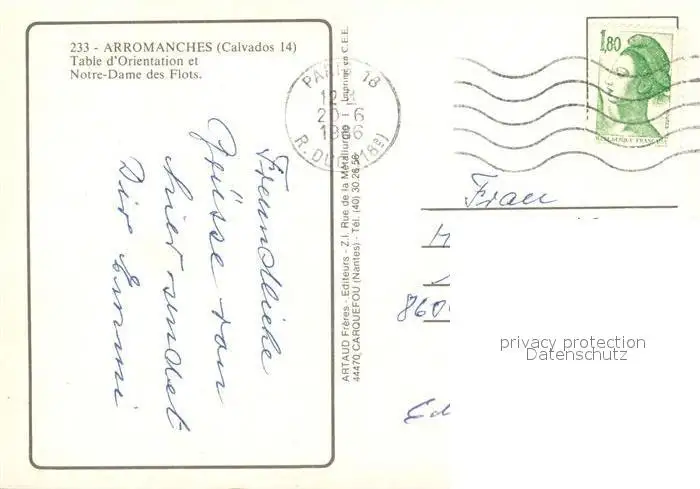 233 - ARROMANCHES (Calvados 14)
Table d'Orientation et
Notre-Dame des Flots.
Freundliche
Grüsse von
hier sendet
Dir Emmi
ARTAUD Frères - Editeurs - Z.I. Rue de la Métallurgie
44470 CARQUEFOU (Nantes) - Tél. (40) 30.28.58
Imprimé en C.E.E.
PARIS 18
20-6
1,80
REPUBLIQUE FRANÇAISE
Frau
860
privacy protection
Datenschutz